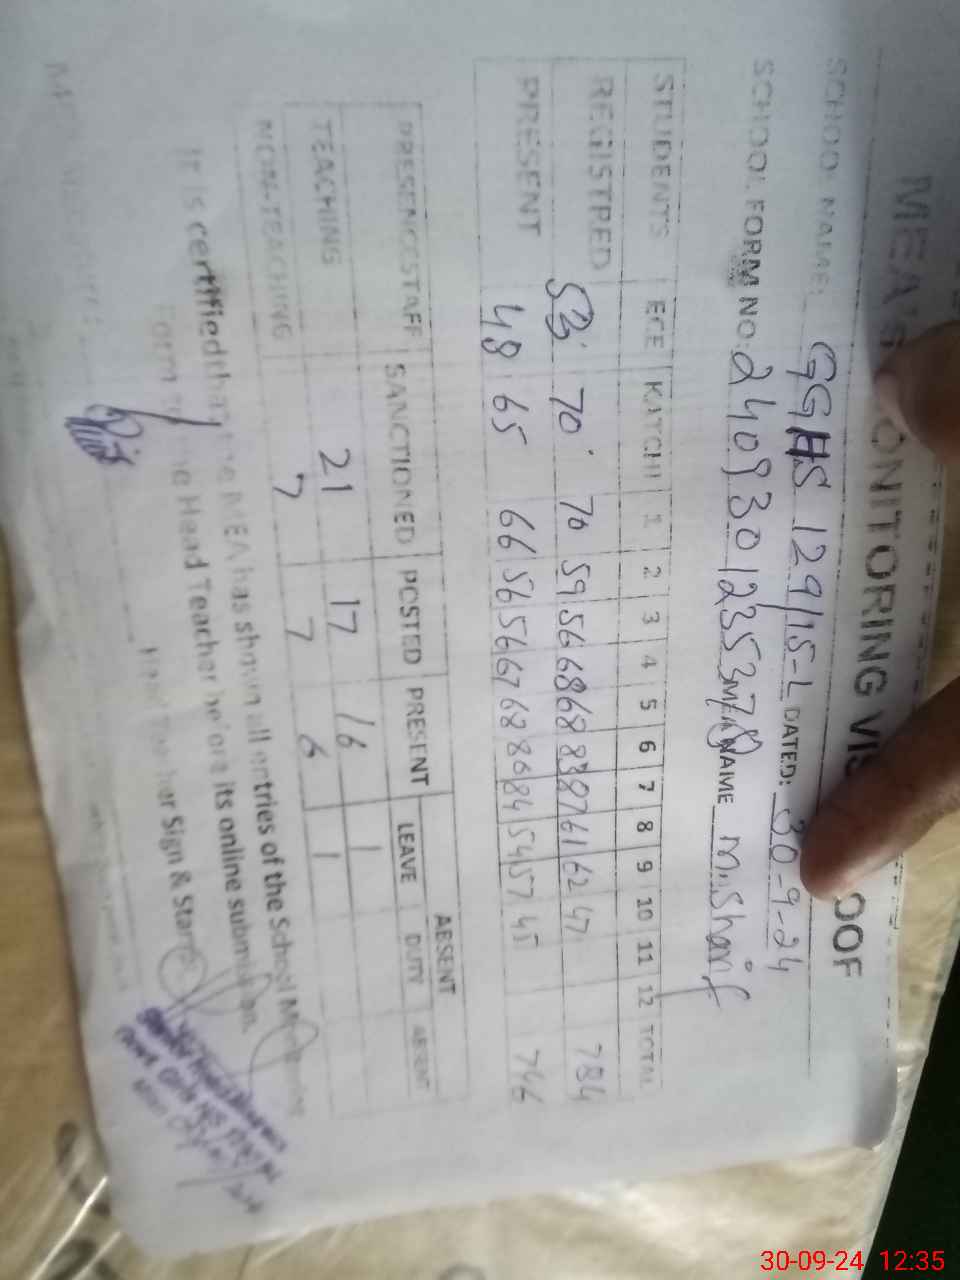 MEA'S MONITORING VIS OOF
SCHOOL NAME: GGHS 129/15-L DATED: 30-9-24
SCHOOL FORM NO: MEA NAME M. Sharif
STUDENTS ECE KATCHI 1 2 3 4 5 6 7 8 9 10 11 12 TOTAL
REGISTRED 53 70 70 59 56 68 68 83 87 61 62 47 784
PRESENT 48 65 66 56 56 67 68 86 84 54 57 45 746
ABSENT
PRESENCSTAFF SANCTIONED POSTED PRESENT LEAVE DUTY ABSENT
TEACHING 21 17 16 1
NON-TEACHING 7 7 6 1
It is certified that the MEA has shown all entries of the School Monitoring
Form to the Head Teacher before its online submission.
Head Teacher Sign & Stamp
30-09-24 12:35